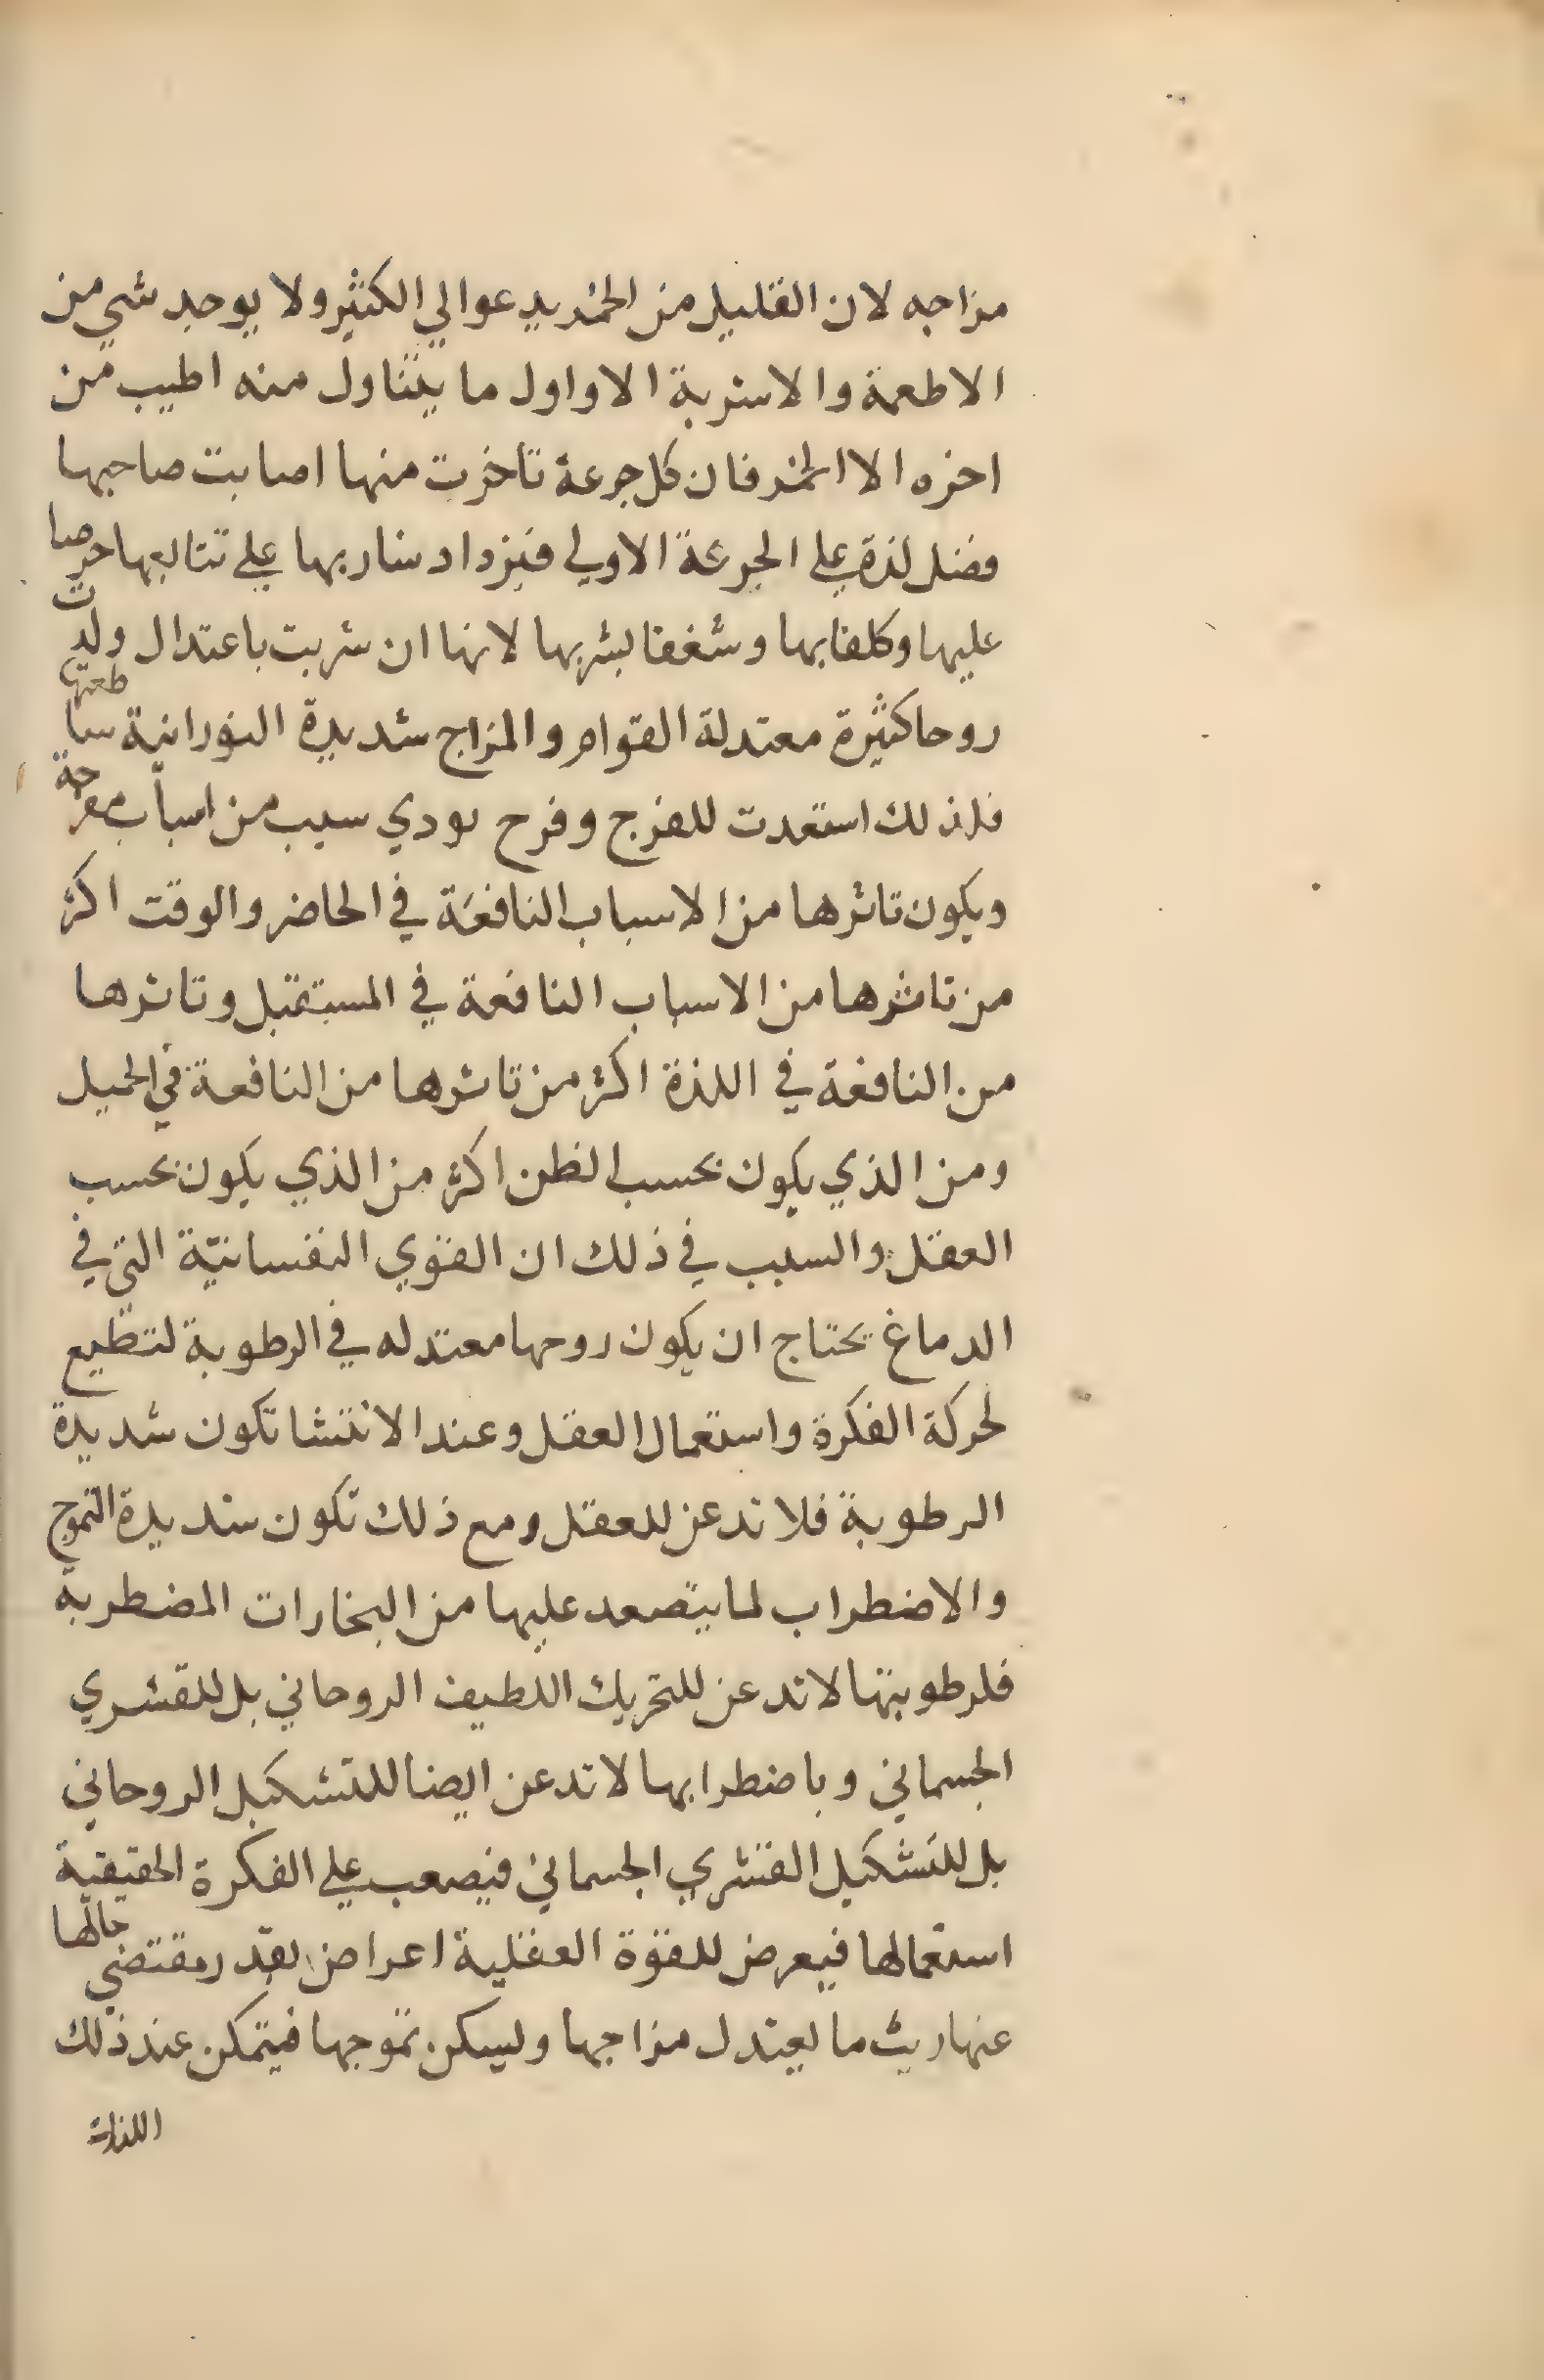 مزاجه لان القليل من الخمر يدعوا الي الكثير ولا يوجد شي من
الاطعمة والاشربة الا واول ما يتناول منه اطيب من
اخره الا الخمر فان كل جرعة تاخرت منها اصابت صاحبها
فضل لذة علي الجرعة الاولي فيزداد شاربها علي تتابعها حرصا
عليها وكلفا بها وشغفا بشربها لانها ان شربت باعتدال ولدت
روحا كثيرة معتدلة القوام والمزاج شديدة النورانية ساطعتها
فلذلك استعدت للفرح وفرح بودي سبب من اسباب مفرحة
ويكون تاثرها من الاسباب النافعة في الحاضر والوقت اكثر
من تاثرها من الاسباب النافعة في المستقبل وتاثرها
من النافعة في اللذة اكثر من تاثرها من النافعة في الجميل
ومن الذي يكون بحسب الظن اكثر من الذي يكون بحسب
العقل والسبب في ذلك ان القوي النفسانيّة التي في
الدماغ يحتاج ان يكون روحها معتدله في الرطوبة لتطيع
لحركة الفكرة واستعمال العقل وعند الانتشا تكون شديدة
الرطوبة فلا تدعن للعقل ومع ذلك تكون شديدة التموج
والاضطراب لما يتصعد عليها من البخارات المضطربة
فلرطوبتها لا تدعن للتحريك اللطيف الروحاني بل للقشري
الجسماني وباضطرابها لا تدعن ايضا للتشكيل الروحاني
بل للتشكيل القشري الجسماني فيصعب علي الفكرة الحقيقية
استعمالها فيعرض للقوة العقلية اعراض بقدر مقتضي حالها
عنها ريث ما يعتدل مزاجها ويسكن تموجها فيتمكن عند ذلك
اللذات